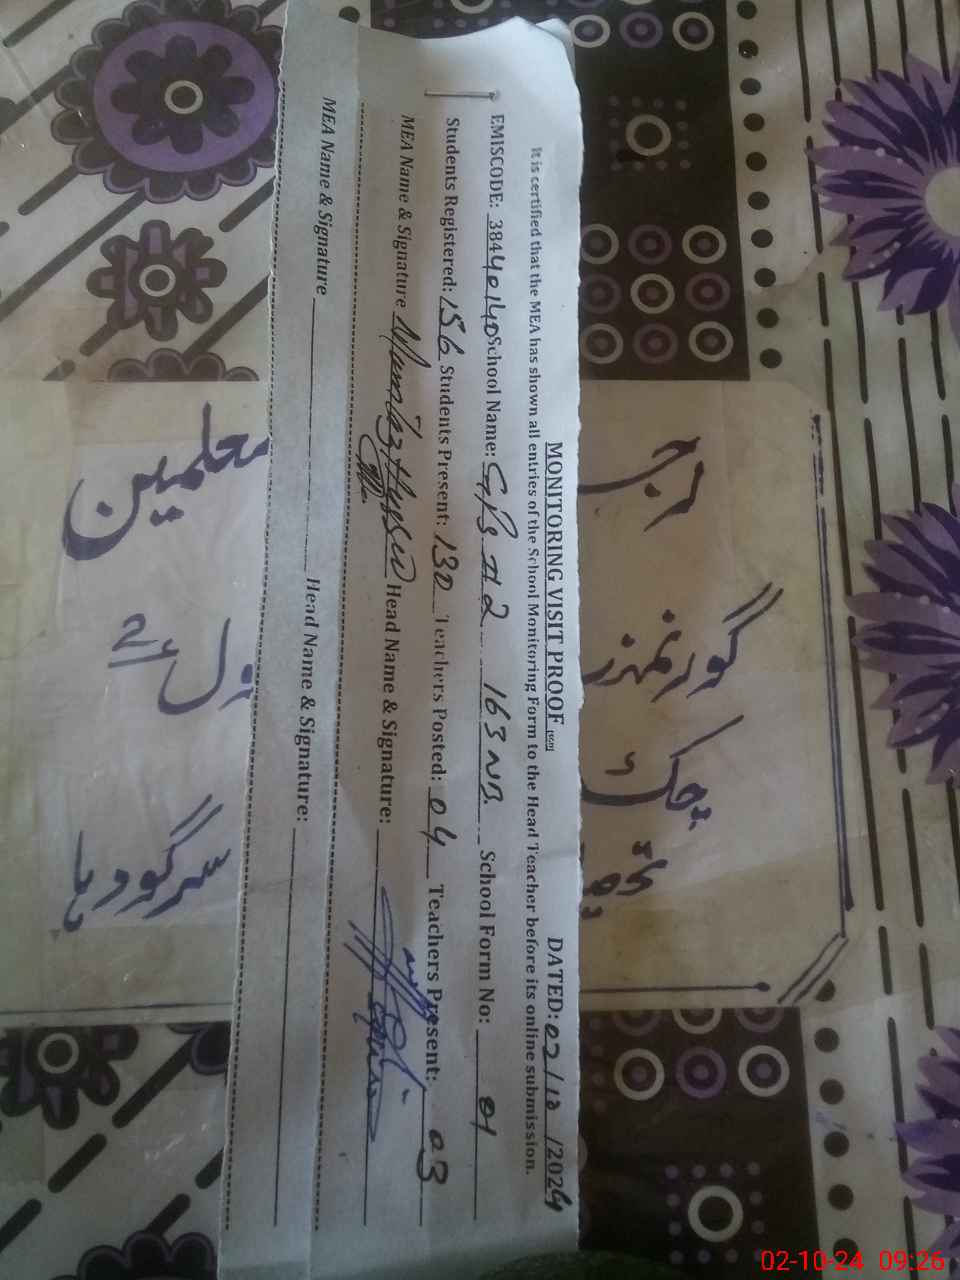 MONITORING VISIT PROOF DATED: 02/10/2024
It is certified that the MEA has shown all entries of the School Monitoring Form to the Head Teacher before its online submission.
EMISCODE: 38440140 School Name: GPS # 2 163 NB. School Form No: 01
Students Registered: 156 Students Present: 130 Teachers Posted: 04 Teachers Present: 03
MEA Name & Signature Mumtaz Hussain Head Name & Signature:
MEA Name & Signature Head Name & Signature:
گورنمنٹ
چک
معلمین
سرگودہا
02-10-24 09:26